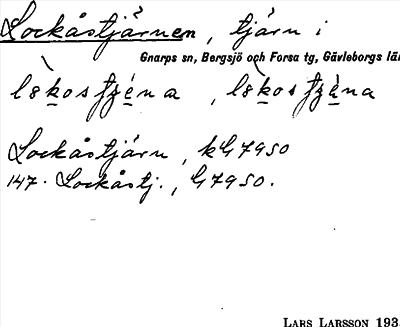 Lockåstjärnen, tjärn i
Gnarps sn, Bergsjö och Forsa tg, Gävleborgs lä
Lockåstjärn, k G7950
147. Lockåstj., G7950.
LARS LARSSON 193